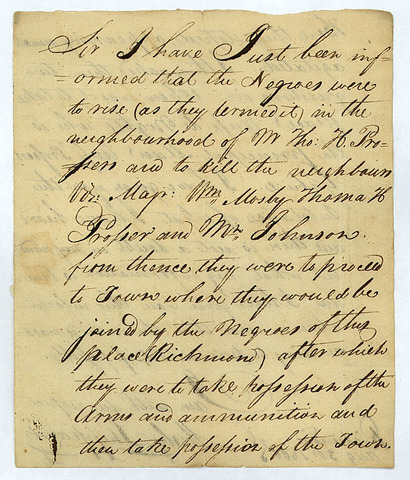 Sir I have Just been inf-
-ormed that the Negroes were
to rise (as they termed it) in the
neighbourhood of Mr Tho: H. Pro-
ssers and to kill the neighbours
Viz: Majr: Wm. Mosby Thomas H
Prosser and Mr. Johnson
from thence they were to proceed
to Town where they would be
joined by the Negroes of this
place (Richmond) after which
they were to take possession of the
Arms and ammunition and
then take possession of the Town.